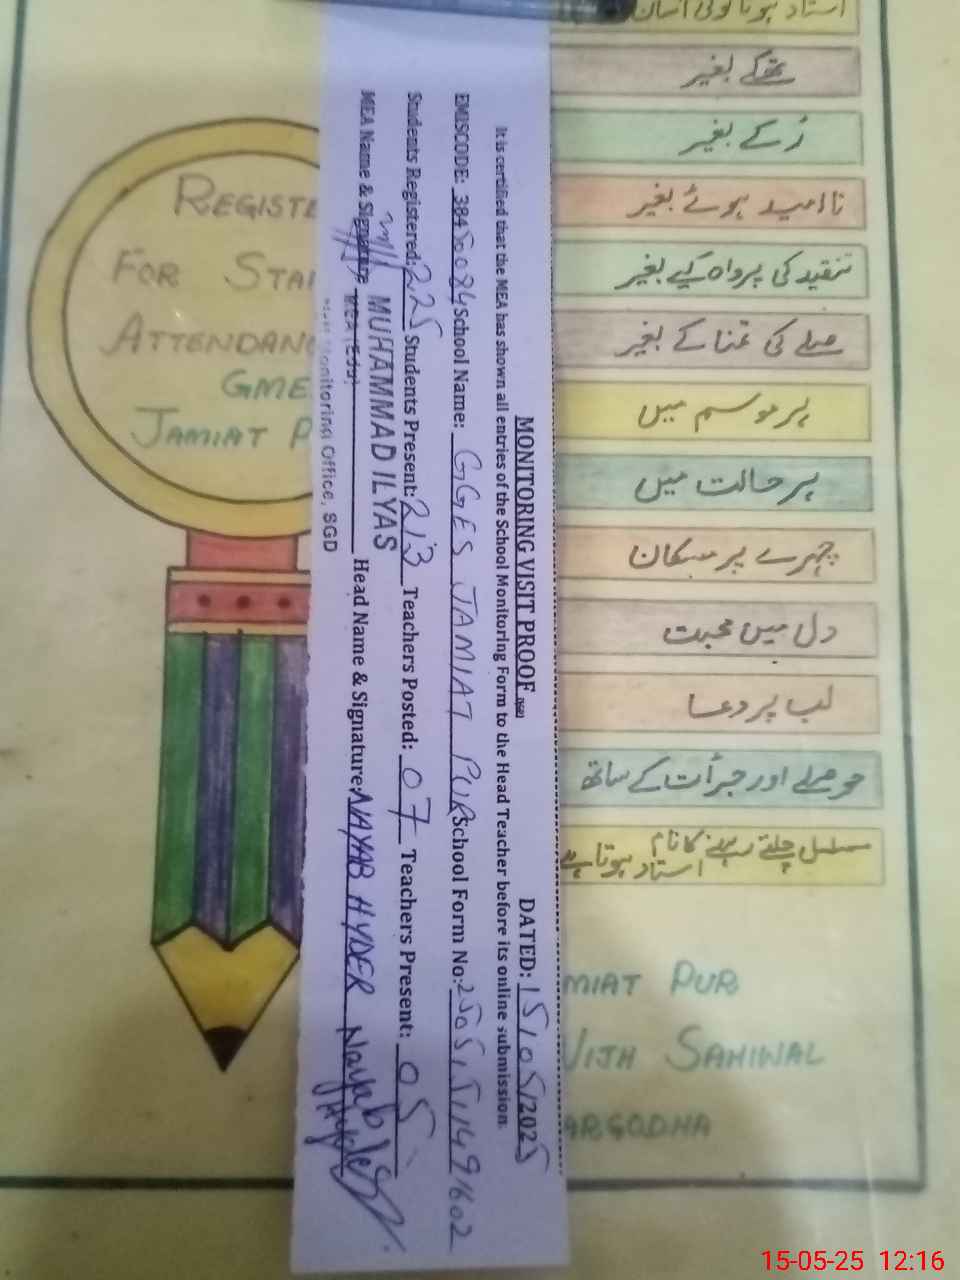 MONITORING VISIT PROOF DATED: 15/05/2025
It is certified that the MEA has shown all entries of the School Monitoring Form to the Head Teacher before its online submission.
EMISCODE: 38450084 School Name: GGES JAMIAT PUR School Form No: 2505151491602
Students Registered: 225 Students Present: 213 Teachers Posted: 07 Teachers Present: 05
MEA Name & Signature MUHAMMAD ILYAS Head Name & Signature: NAYAB HYDER Nayab Hyder
MEA (Edu)
Monitoring Office, SGD
REGISTE
FOR STA
ATTENDAN
GME
JAMIAT P
استاد ہونا کوئی آسان
تھکے بغیر
رُکے بغیر
ناامید ہوئے بغیر
تنقید کی پرواہ کیے بغیر
صلے کی تمنا کے بغیر
ہر موسم میں
ہر حالت میں
چہرے پر مسکان
دل میں محبت
لب پر دعا
حوصلے اور جرأت کے ساتھ
مسلسل چلتے رہنے کا نام
استاد ہوتا ہے
MIAT PUR
SAHIWAL
ARGODHA
15-05-25 12:16